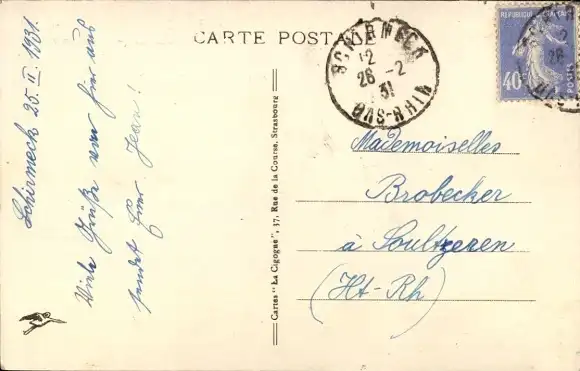 CARTE POSTALE
Schirmeck 25. II. 1931.
Viele Grüße von hier aus
sendet Euer Jean!
Cartes "La Cigogne", 37, Rue de la Course, Strasbourg
SCHIRMECK
12
26 -2
31
BAS-RHIN
RÉPUBLIQUE FRANÇAISE
40
POSTES
Mademoiselles
Brobecker
à Soultzeren
(Ht-Rh)